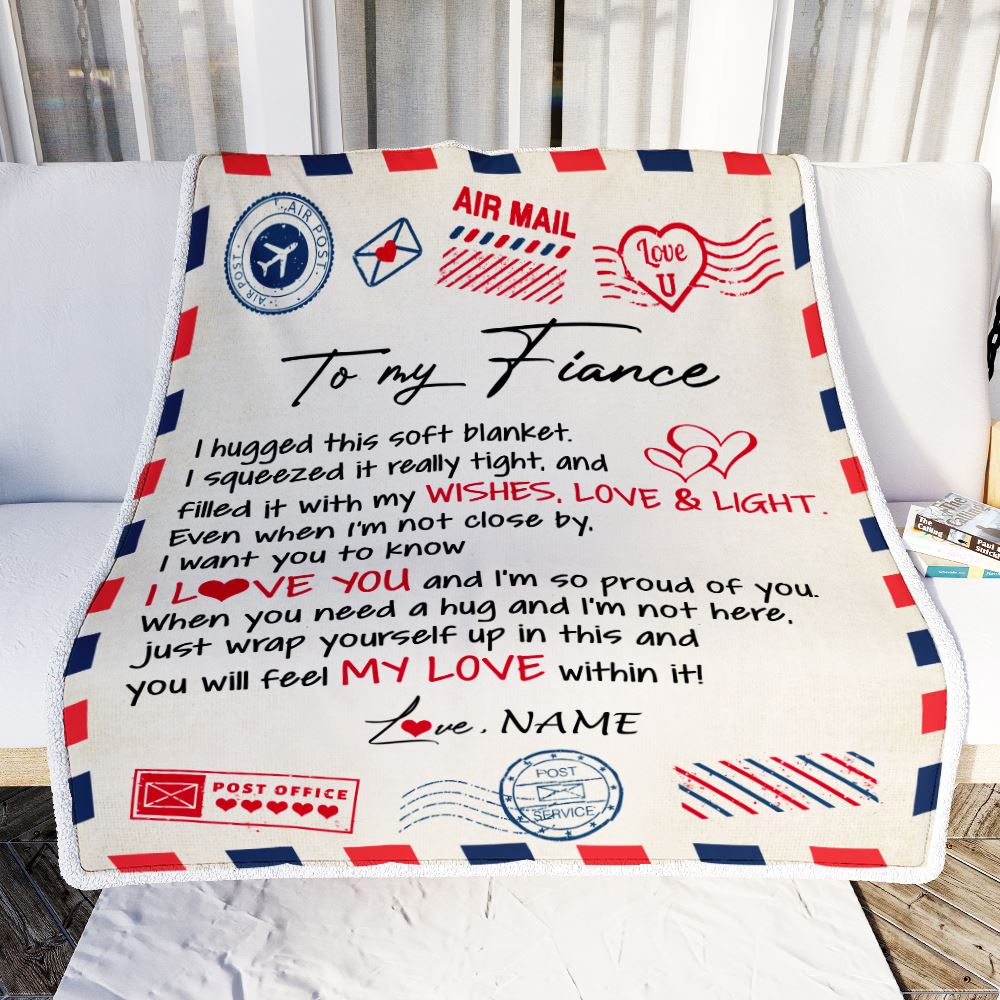 AIR POST
AIR POST
AIR MAIL
Love
U
To my Fiance
I hugged this soft blanket.
I squeezed it really tight, and
filled it with my WISHES, LOVE & LIGHT.
Even when I'm not close by,
I want you to know
I L♥VE YOU and I'm so proud of you.
When you need a hug and I'm not here,
just wrap yourself up in this and
you will feel MY LOVE within it!
L♥ve, NAME
POST OFFICE
POST
SERVICE
The
Calling
Paul